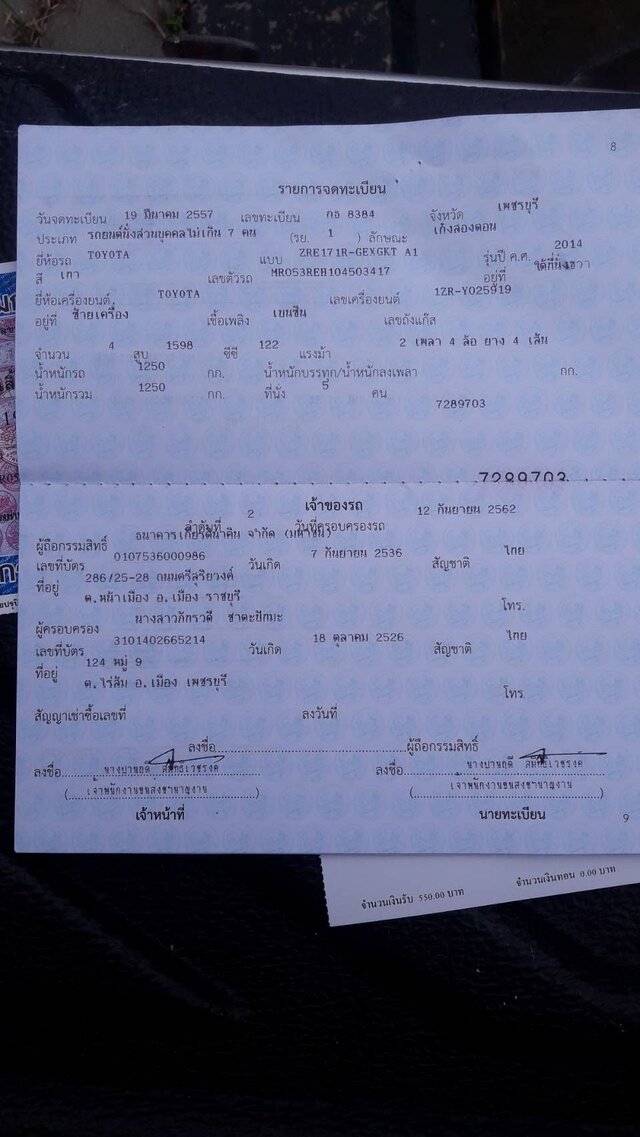 8
รายการจดทะเบียน
วันจดทะเบียน 19 มีนาคม 2557 เลขทะเบียน กธ 8384 จังหวัด เพชรบุรี
ประเภท รถยนต์นั่งส่วนบุคคลไม่เกิน 7 คน (รย. 1 ) ลักษณะ เก๋งสองตอน
ยี่ห้อรถ TOYOTA แบบ ZRE171R-GEXGKT A1 รุ่นปี ค.ศ. 2014
สี เทา เลขตัวรถ MR053REH104503417 อยู่ที่ ใต้ที่นั่งขวา
ยี่ห้อเครื่องยนต์ TOYOTA เลขเครื่องยนต์ 1ZR-Y025919
อยู่ที่ ซ้ายเครื่อง เชื้อเพลิง เบนซิน เลขถังแก๊ส
จำนวน 4 สูบ 1598 ซีซี 122 แรงม้า 2 เพลา 4 ล้อ ยาง 4 เส้น
น้ำหนักรถ 1250 กก. น้ำหนักบรรทุก/น้ำหนักลงเพลา กก.
น้ำหนักรวม 1250 กก. ที่นั่ง 5 คน
7289703
7289703
เจ้าของรถ
ลำดับที่ 2 วันที่ครอบครองรถ 12 กันยายน 2562
ผู้ถือกรรมสิทธิ์ ธนาคารเกียรตินาคิน จำกัด (มหาชน)
เลขที่บัตร 0107536000986 วันเกิด 7 กันยายน 2536 สัญชาติ ไทย
ที่อยู่ 286/25-28 ถนนศรีสุริยวงศ์
ต.หน้าเมือง อ.เมือง ราชบุรี โทร.
ผู้ครอบครอง นางสาวภัทรวดี ชาตะปัทมะ
เลขที่บัตร 3101402665214 วันเกิด 18 ตุลาคม 2526 สัญชาติ ไทย
ที่อยู่ 124 หมู่ 9
ต.ไร่ส้ม อ.เมือง เพชรบุรี โทร.
สัญญาเช่าซื้อเลขที่ ลงวันที่
ลงชื่อ ผู้ถือกรรมสิทธิ์
ลงชื่อ ลงชื่อ
(เจ้าพนักงานขนส่งชำนาญงาน) (เจ้าพนักงานขนส่งชำนาญงาน)
เจ้าหน้าที่ นายทะเบียน
9
จำนวนเงินรับ 550.00 บาท จำนวนเงินทอน 0.00 บาท